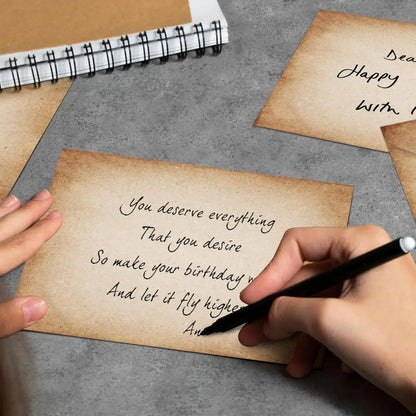 You deserve everything
That you desire
So make your birthday
And let it fly
Dear
Happy
With